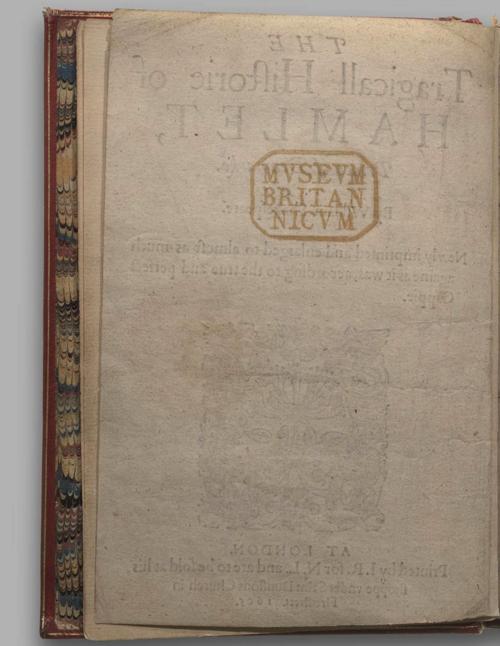 THE
Tragicall Historie of
HAMLET,
MVSEVM
BRITAN
NICVM
Newly imprinted and enlarged to almost as much
againe as it was, according to the true and perfect
Coppie.
AT LONDON,
Printed by I. R. for N. L. and are to be sold at his
shoppe vnder Saint Dunstons Church in
Fleetstreet.